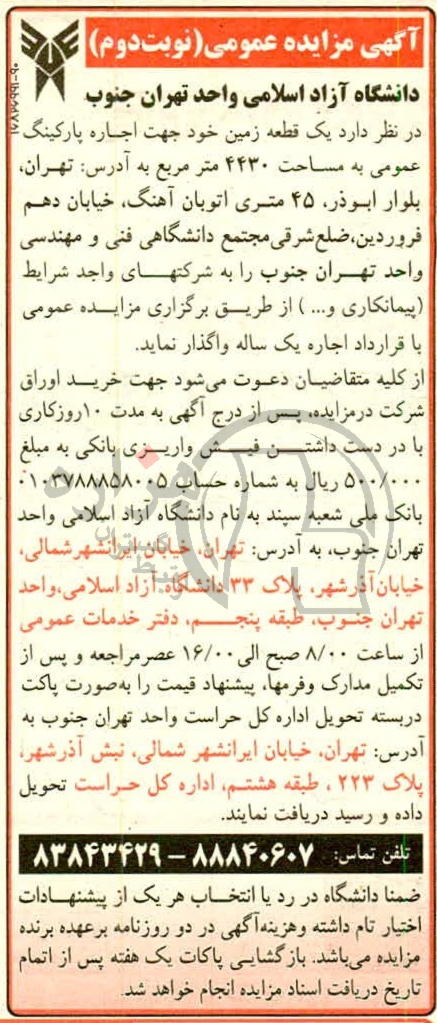 آگهی مزایده عمومی (نوبت دوم)
دانشگاه آزاد اسلامی واحد تهران جنوب
در نظر دارد یک قطعه زمین خود جهت اجاره پارکینگ
عمومی به مساحت ۴۴۳۰ متر مربع به آدرس: تهران،
بلوار ابوذر، ۴۵ متری اتوبان آهنگ، خیابان دهم
فروردین،ضلع شرقی مجتمع دانشگاهی فنی و مهندسی
واحد تهران جنوب را به شرکتهای واجد شرایط
(پیمانکاری و... ) از طریق برگزاری مزایده عمومی
با قرارداد اجاره یک ساله واگذار نماید.
از کلیه متقاضیان دعوت می‌شود جهت خرید اوراق
شرکت درمزایده، پس از درج آگهی به مدت ۱۰روزکاری
با در دست داشتن فیش واریزی بانکی به مبلغ
۵۰۰/۰۰۰ ریال به شماره حساب ۰۱۰۳۷۸۸۸۵۸۰۰۵
بانک ملی شعبه سپند به نام دانشگاه آزاد اسلامی واحد
تهران جنوب، به آدرس: تهران، خیابان ایرانشهرشمالی،
خیابان آذرشهر، پلاک ۳۳ دانشگاه آزاد اسلامی،واحد
تهران جنوب، طبقه پنجم، دفتر خدمات عمومی
از ساعت ۸/۰۰ صبح الی ۱۶/۰۰ عصرمراجعه و پس از
تکمیل مدارک وفرمها، پیشنهاد قیمت را به‌صورت پاکت
دربسته تحویل اداره کل حراست واحد تهران جنوب به
آدرس: تهران، خیابان ایرانشهر شمالی، نبش آذرشهر،
پلاک ۲۲۳ ، طبقه هشتم، اداره کل حراست تحویل
داده و رسید دریافت نمایند.
تلفن تماس: ۸۸۸۴۰۶۰۷ – ۸۳۸۴۳۴۲۹
ضمنا دانشگاه در رد یا انتخاب هر یک از پیشنهادات
اختیار تام داشته وهزینه‌آگهی در دو روزنامه برعهده برنده
مزایده می‌باشد. بازگشایی پاکات یک هفته پس از اتمام
تاریخ دریافت اسناد مزایده انجام خواهد شد.